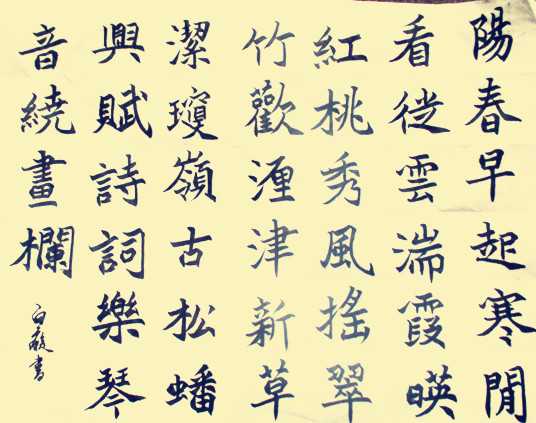 陽春早起寒閒
看從雲湍霞暎
紅桃秀風搖翠
竹歡湮津新草
潔瓊嶺古松蟠
興賦詩詞樂琴
音繞畫欄
白書